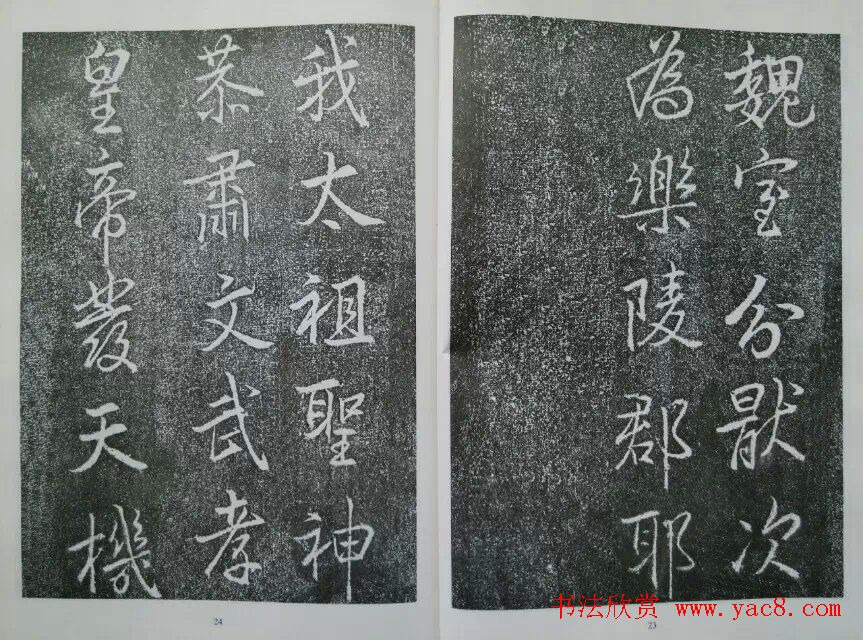 魏室分猒次
為樂陵郡耶
23
我太祖聖神
恭肅文武孝
皇帝發天機
24
书法欣赏 www.yac8.com